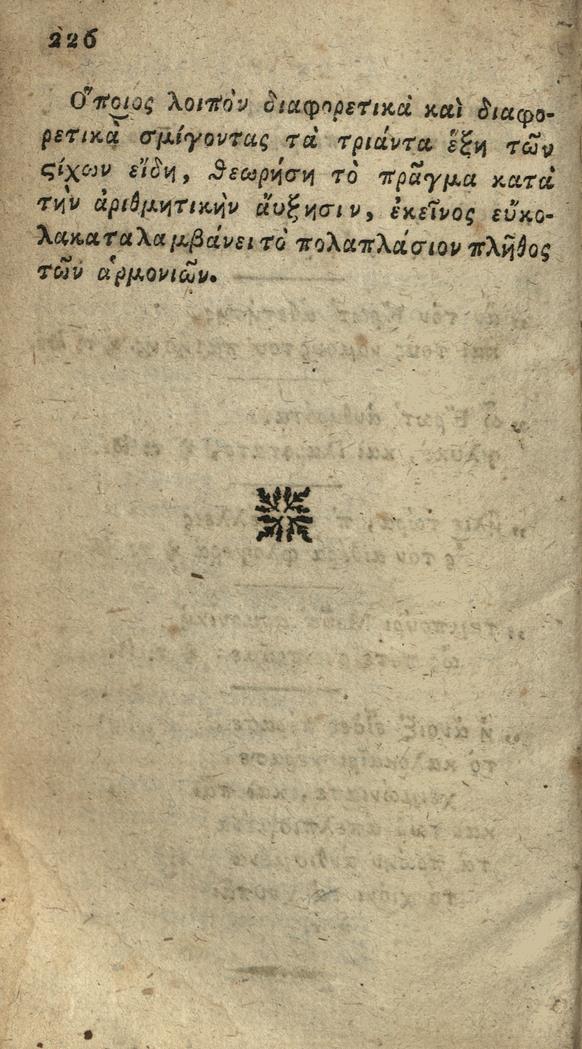 226
Ὅποιος λοιπὸν διαφορετικὰ καὶ διαφο-
ρετικὰ σμίγοντας τὰ τριάντα ἕξη τῶν
ςίχων εἴδη, θεωρήση τὸ πρᾶγμα κατὰ
τὴν ἀριθμητικὴν ἄυξησιν, ἐκεῖνος εὔκο-
λακαταλαμβάνει τὸ πολαπλάσιον πλῆθος
τῶν ἁρμονιῶν.